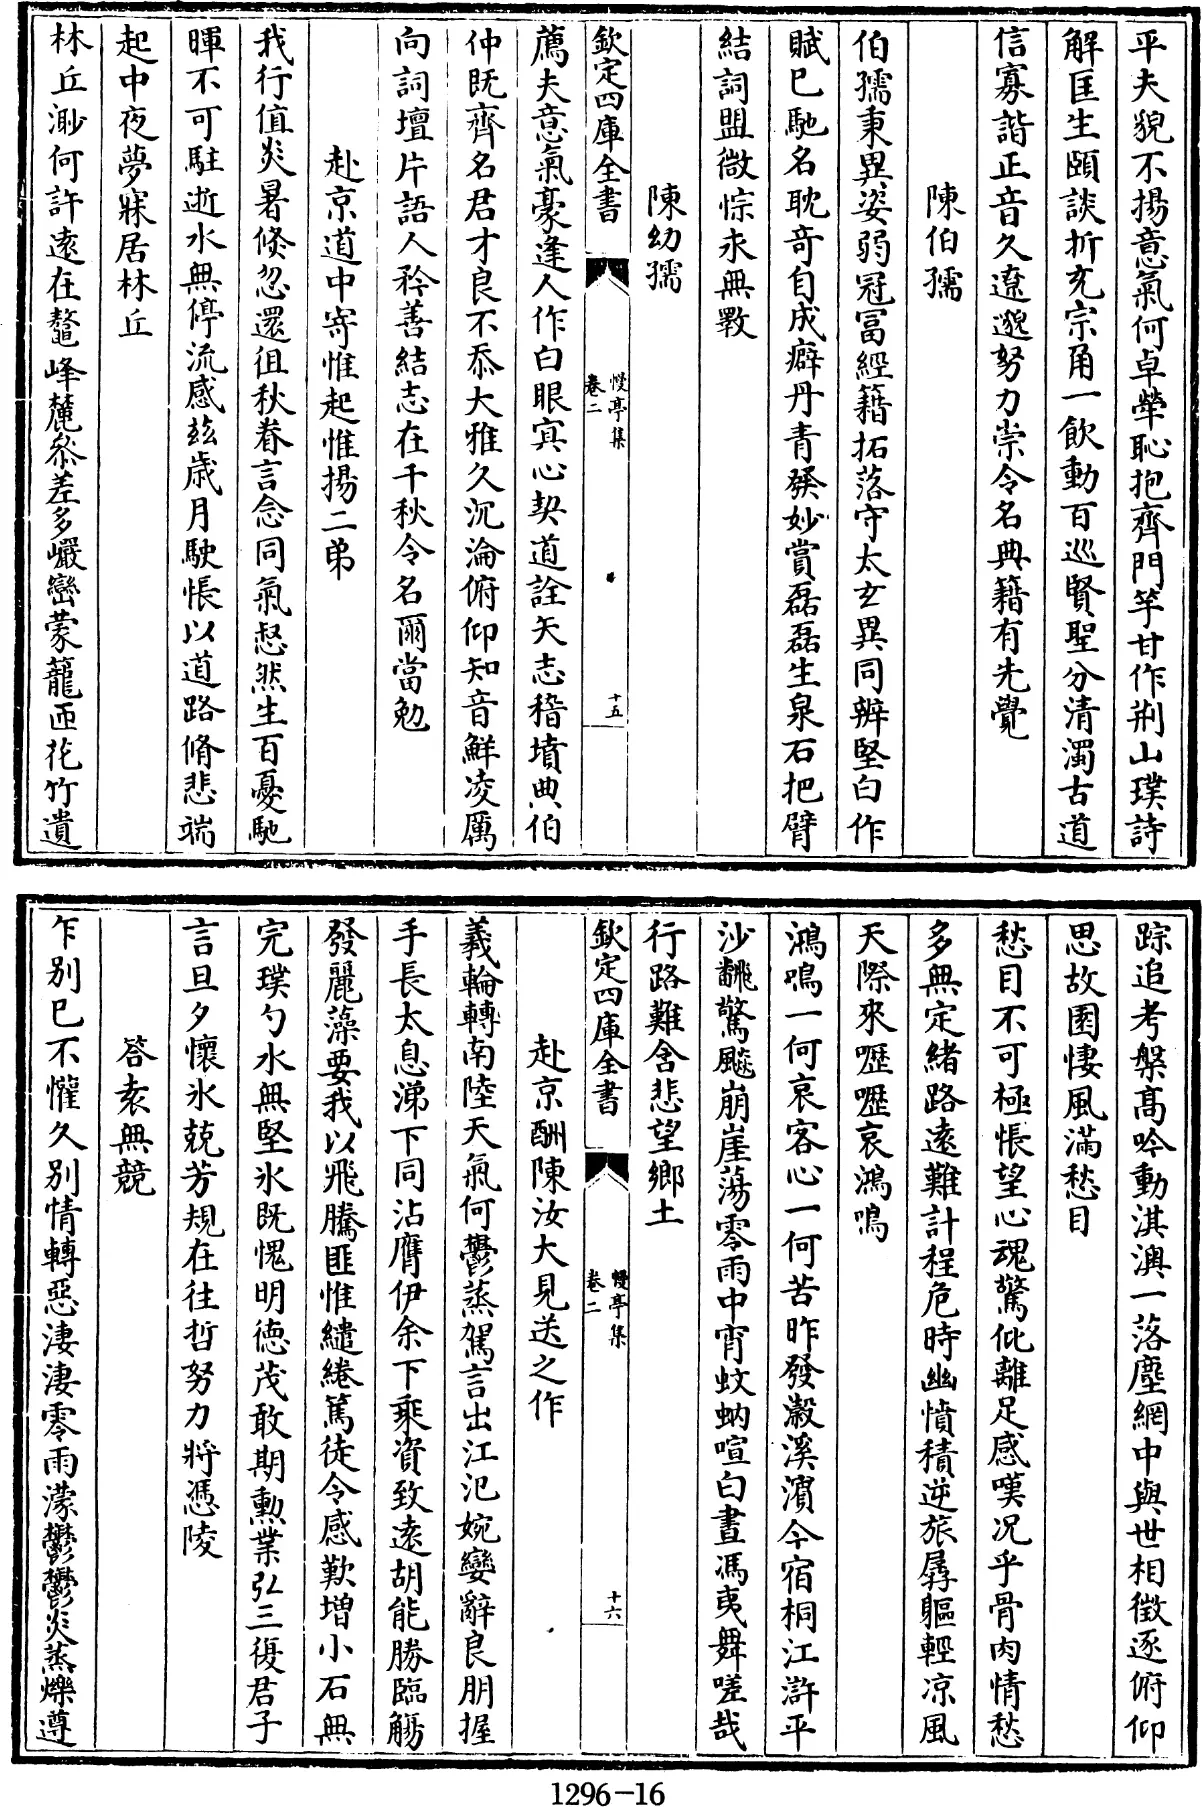 平夫貌不揚意氣何卓犖恥抱齊門竽甘作荆山璞詩
解匡生頤談折充宗角一飲動百巡賢聖分清濁古道
信寡諧正音久遼邈努力崇令名典籍有先覺
陳伯孺
伯孺秉異姿弱冠富經籍拓落守太玄異同辨堅白作
賦已馳名耽奇自成癖丹青發妙賞磊磊生泉石把臂
結詞盟微悰永無斁
陳幼孺
欽定四庫全書
慢亭集
卷二
十五
薦夫意氣豪逢人作白眼寘心契道詮矢志稽墳典伯
仲既齊名君才良不忝大雅久沉淪俯仰知音鮮凌厲
向詞壇片語人矜善結志在千秋令名爾當勉
赴京道中寄惟起惟揚二弟
我行值炎暑倐忽還徂秋眷言念同氣惄然生百憂馳
暉不可駐逝水無停流感兹歲月駛悵以道路脩悲端
起中夜夢寐居林丘
林丘渺何許遠在鼇峰麓叅差多巗巒蒙蘢匝花竹遺
踪追考槃高吟動淇澳一落塵網中與世相徵逐俯仰
思故園悽風滿愁目
愁目不可極悵望心魂驚仳離足感嘆况乎骨肉情愁
多無定緒路遠難計程危時幽憤積逆旅孱軀輕凉風
天際來嚦嚦哀鴻鳴
鴻鳴一何哀客心一何苦昨發瀫溪濵今宿桐江滸平
沙飜驚飈崩崖蕩零雨中宵蚊蚋喧白晝馮夷舞嗟哉
行路難含悲望鄉土
欽定四庫全書
慢亭集
卷二
十六
赴京酬陳汝大見送之作
義輪轉南陸天氣何鬱蒸駕言出江汜婉孌辭良朋握
手長太息涕下同沾膺伊余下乘資致遠胡能勝臨觴
發麗藻要我以飛騰匪惟繾綣篤徒令感歎增小石無
完璞勺水無堅氷既愧明德茂敢期勲業弘三復君子
言旦夕懷氷兢芳規在往哲努力將憑陵
答袁無競
乍別已不懽久別情轉惡淒淒零雨濛鬱鬱炎蒸爍遵
1296-16